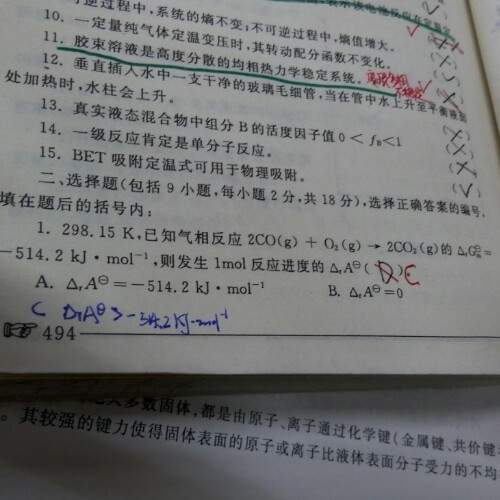 可逆过程中,系统的熵不变;不可逆过程中,熵值增大。
10. 一定量纯气体定温变压时,其转动配分函数不变化。
11. 胶束溶液是高度分散的均相热力学稳定系统。
12. 垂直插入水中一支干净的玻璃毛细管,当在管中水上升至平衡
处加热时,水柱会上升。
13. 真实液态混合物中组分 B 的活度因子值 0 < fB<1
14. 一级反应肯定是单分子反应。
15. BET 吸附定温式可用于物理吸附。
二、选择题(包括 9 小题,每小题 2 分,共 18 分),选择正确答案的编号,
填在题后的括号内:
1. 298.15 K,已知气相反应 2CO(g) + O₂(g) → 2CO₂(g) 的 ΔrG⊖m=
-514.2 kJ·mol⁻¹,则发生 1mol 反应进度的 ΔrA⊖( D )C
A. ΔrA⊖=-514.2 kJ·mol⁻¹ B. ΔrA⊖=0
C ΔrA⊖>-514.2 kJ·mol⁻¹
494
大多数固体,都是由原子、离子通过化学键(金属键、共价键
。其较强的键力使得固体表面的原子或离子比液体表面分子受力的不均